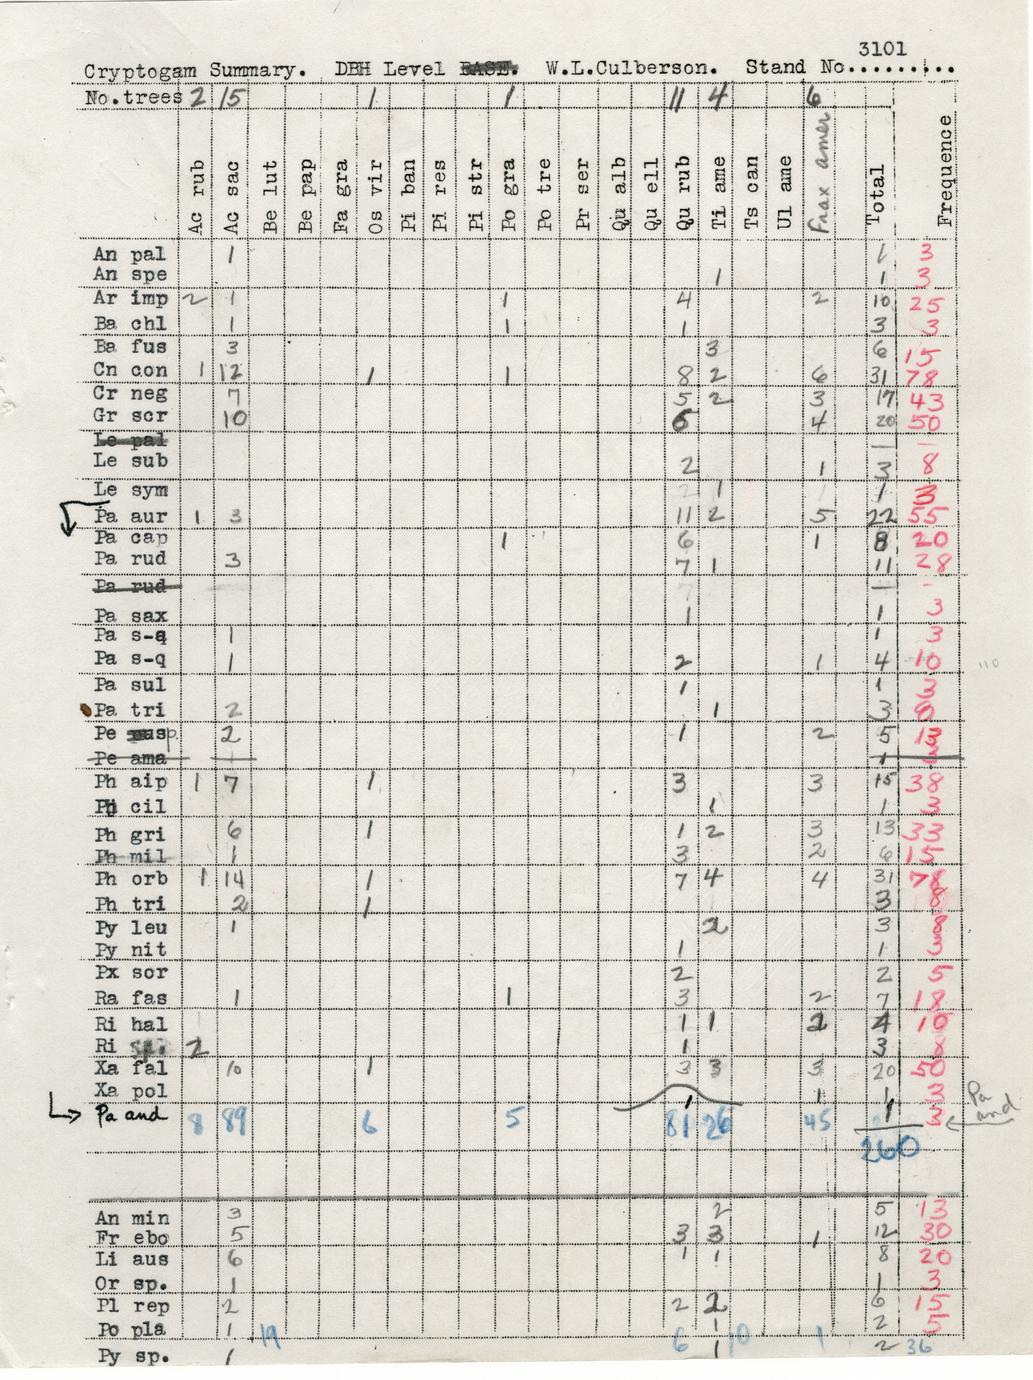 3101
Cryptogam Summary. DBH Level BASE. W.L.Culberson. Stand No.........
No.trees 2 15 1 1 11 4 6
Ac rub Ac sac Be lut Be pap Fa gra Os vir Pi ban Pi res Pi str Po gra Po tre Pr ser Qu alb Qu ell Qu rub Ti ame Ts can Ul ame Frax amer Total Frequence
An pal 1 1 3
An spe 1 1 3
Ar imp 2 1 1 4 2 10 25
Ba chl 1 1 1 3 3
Ba fus 3 3 6 15
Cn con 1 12 1 1 8 2 6 31 78
Cr neg 7 5 2 3 17 43
Gr scr 10 6 4 20 50
Le pal — -
Le sub 2 1 3 8
Le sym 1 1 3
Pa aur 1 3 11 2 5 22 55
Pa cap 1 6 1 8 20
Pa rud 3 7 1 11 28
Pa rud — -
Pa sax 1 1 3
Pa s-a 1 1 3
Pa s-q 1 2 1 4 10
Pa sul 1 1 3
Pa tri 2 1 3 8
Pe p 2 1 2 5 13
Pe ama 1 1 3
Ph aip 1 7 1 3 3 15 38
Ph cil 1 1 3
Ph gri 6 1 1 2 3 13 33
Ph mil 1 3 2 6 15
Ph orb 1 14 1 7 4 4 31 78
Ph tri 2 1 3 8
Py leu 1 2 3 8
Py nit 1 1 3
Px sor 2 2 5
Ra fas 1 1 3 2 7 18
Ri hal 1 1 2 4 10
Ri sp. 2 1 3 8
Xa fal 10 1 3 3 3 20 50
Xa pol 1 1 3
Pa and 1 1 3 Pa and
8 89 6 5 81 26 45 260
An min 3 2 5 13
Fr ebo 5 3 3 1 12 30
Li aus 6 1 1 8 20
Or sp. 1 1 3
Pl rep 2 2 2 6 15
Po pla 1 1 2 5
19 6 10 1 36
Py sp. 1 1 2